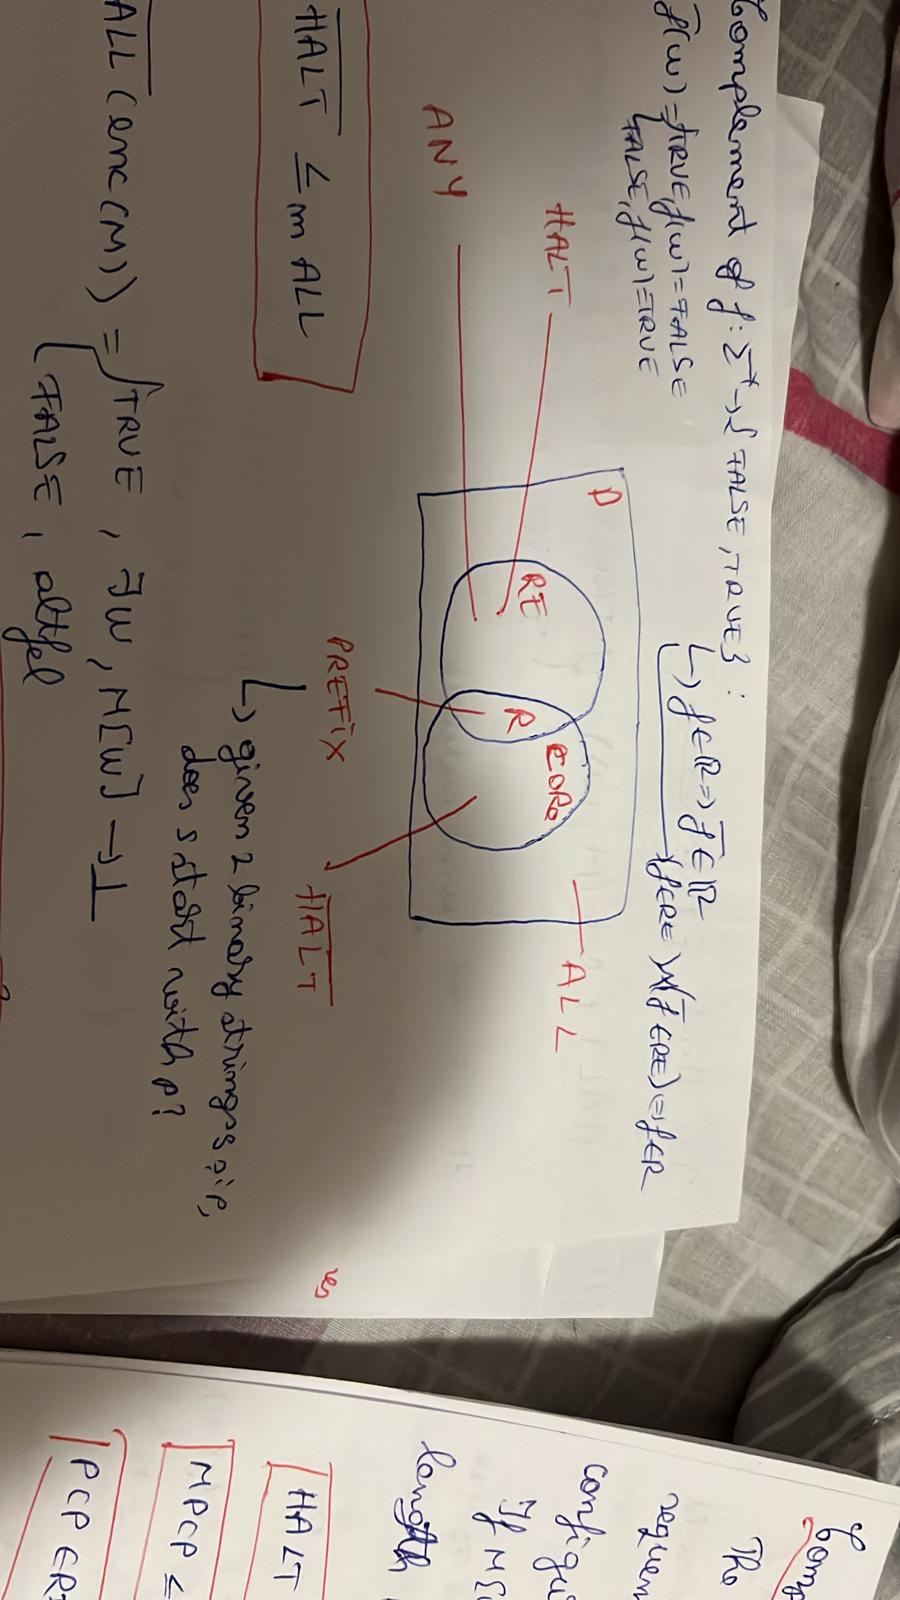 Complement of f: Σ* → {FALSE, TRUE}:
f̅(w) = {TRUE, f(w) = FALSE
FALSE, f(w) = TRUE
↳ f∈R ⇒ f̅∈R
(f∈RE f̅∈RE) ⇒ f∈R
D
HALT
RE
R
CORE
ALL
ANY
PREFIX
H̅A̅L̅T̅
↳ given 2 binary strings s și p,
does s start with p?
H̅A̅L̅T̅ ≤m ALL
A̅L̅L̅ (enc(M)) = {TRUE, ∃w, M[w] → ⊥
FALSE, altfel
3
Comp
The
sequen
configu
If M[
length
HALT
MPCP ≤
PCP ∈ R